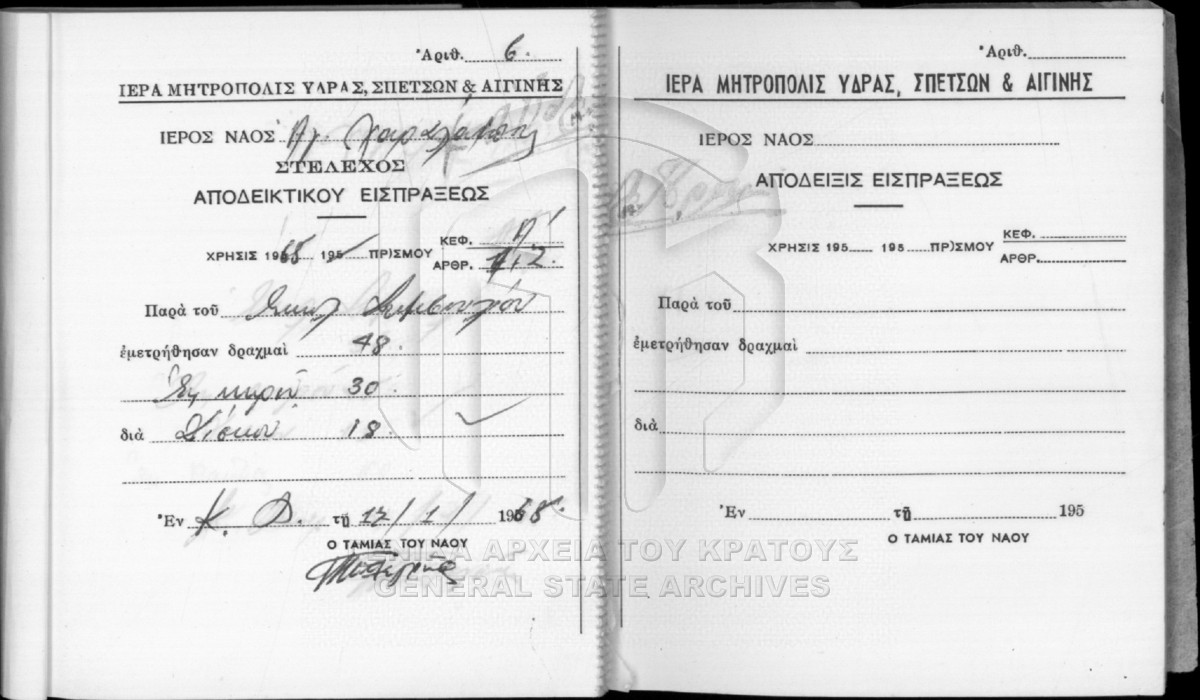 Ἀριθ. 6.
ΙΕΡΑ ΜΗΤΡΟΠΟΛΙΣ ΥΔΡΑΣ, ΣΠΕΤΣΩΝ & ΑΙΓΙΝΗΣ
ΙΕΡΟΣ ΝΑΟΣ Ἁγ. Χαραλάμπης
ΣΤΕΛΕΧΟΣ
ΑΠΟΔΕΙΚΤΙΚΟΥ ΕΙΣΠΡΑΞΕΩΣ
ΚΕΦ. Α'
ΧΡΗΣΙΣ 1968 195 ΠΡ)ΣΜΟΥ
ΑΡΘΡ. 1, 2
Παρὰ τοῦ
ἐμετρήθησαν δραχμαὶ 48.
κηρὸ 30.
διὰ Δίσκου 18.
Ἐν Κ. τῇ 12/1/ 1968.
Ο ΤΑΜΙΑΣ ΤΟΥ ΝΑΟΥ
Ἀριθ.
ΙΕΡΑ ΜΗΤΡΟΠΟΛΙΣ ΥΔΡΑΣ, ΣΠΕΤΣΩΝ & ΑΙΓΙΝΗΣ
ΙΕΡΟΣ ΝΑΟΣ
ΑΠΟΔΕΙΞΙΣ ΕΙΣΠΡΑΞΕΩΣ
ΚΕΦ.
ΧΡΗΣΙΣ 195 195 ΠΡ)ΣΜΟΥ
ΑΡΘΡ.
Παρὰ τοῦ
ἐμετρήθησαν δραχμαὶ
διὰ
Ἐν τῇ 195
Ο ΤΑΜΙΑΣ ΤΟΥ ΝΑΟΥ
ΓΕΝΙΚΑ ΑΡΧΕΙΑ ΤΟΥ ΚΡΑΤΟΥΣ
GENERAL STATE ARCHIVES